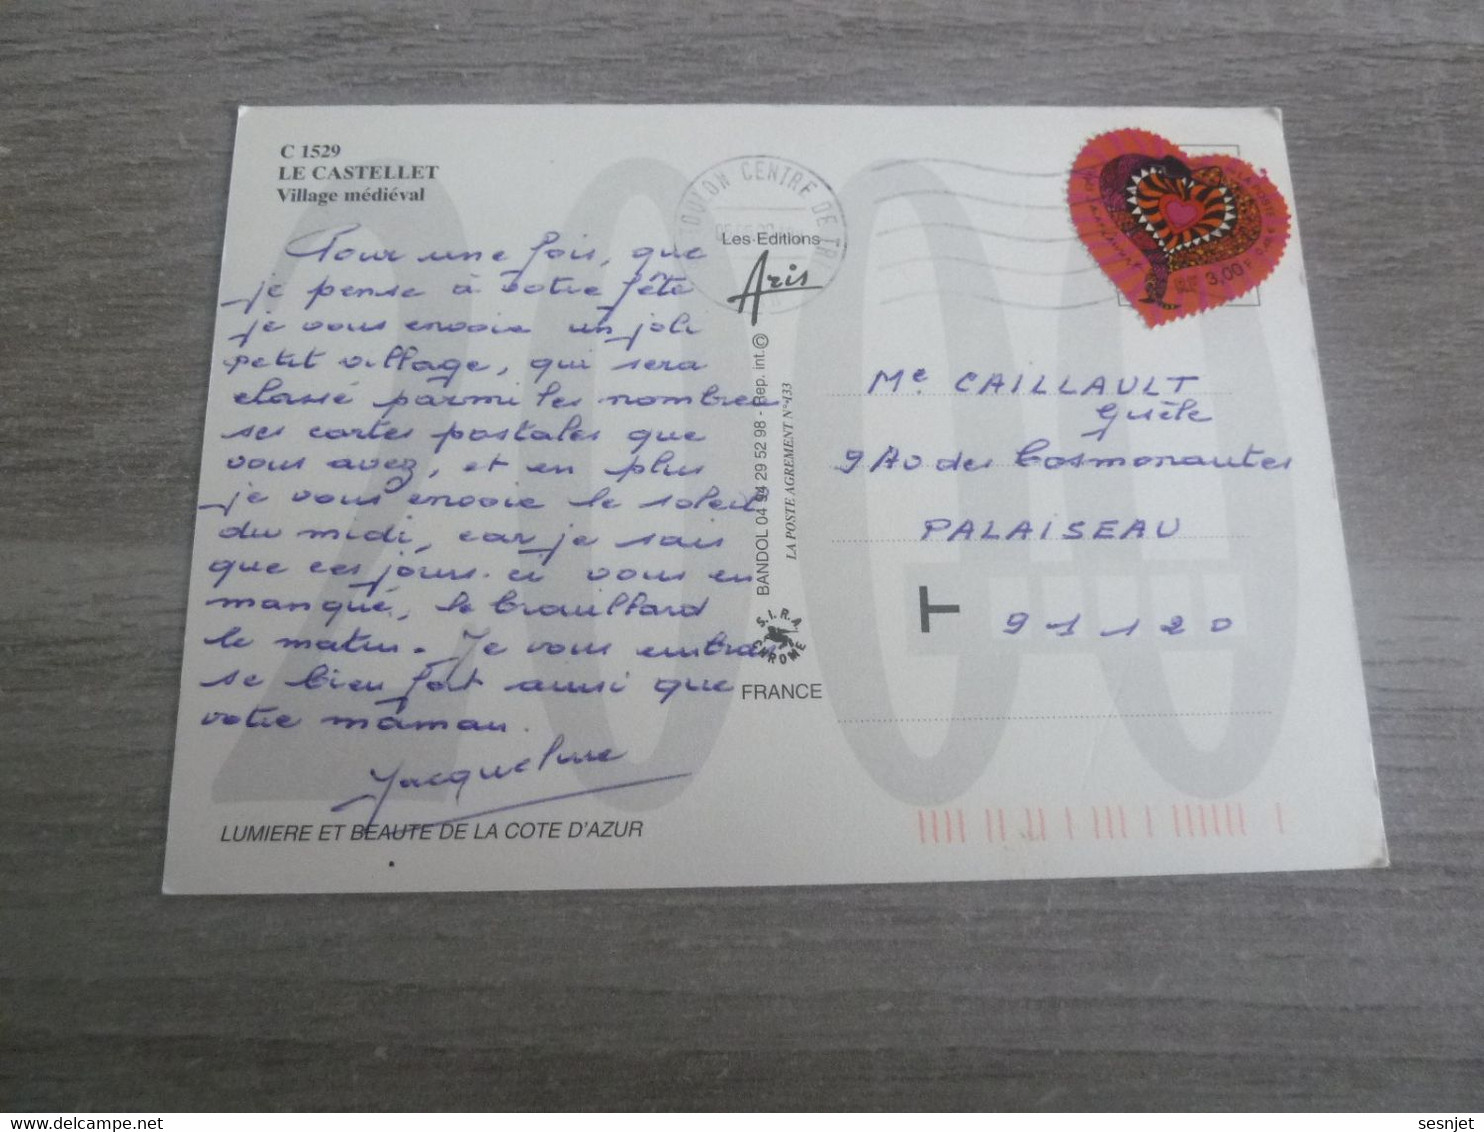 C 1529
LE CASTELLET
Village médiéval
Pour une fois, que
je pense à votre fête
je vous envoie un joli
petit village, qui sera
classé parmi les nombreu
ses cartes postales que
vous avez, et en plus
je vous envoie le soleil
du midi, car je sais
que ces jours-ci vous en
manqué, le brouillard
le matin. Je vous embras
se bien fort ainsi que
votre maman.
Jacqueline
LUMIERE ET BEAUTE DE LA COTE D'AZUR
TOULON CENTRE DE TRI
Les Editions
Aris
BANDOL 04 94 29 52 98 - Rep. int. ©
LA POSTE AGREMENT N° 133
S.I.R.A.
CHROME
FRANCE
2000
3,00 F
RF
Me CAILLAULT
Gisèle
9 Av des Cosmonautes
PALAISEAU
T
91120
sesnjet